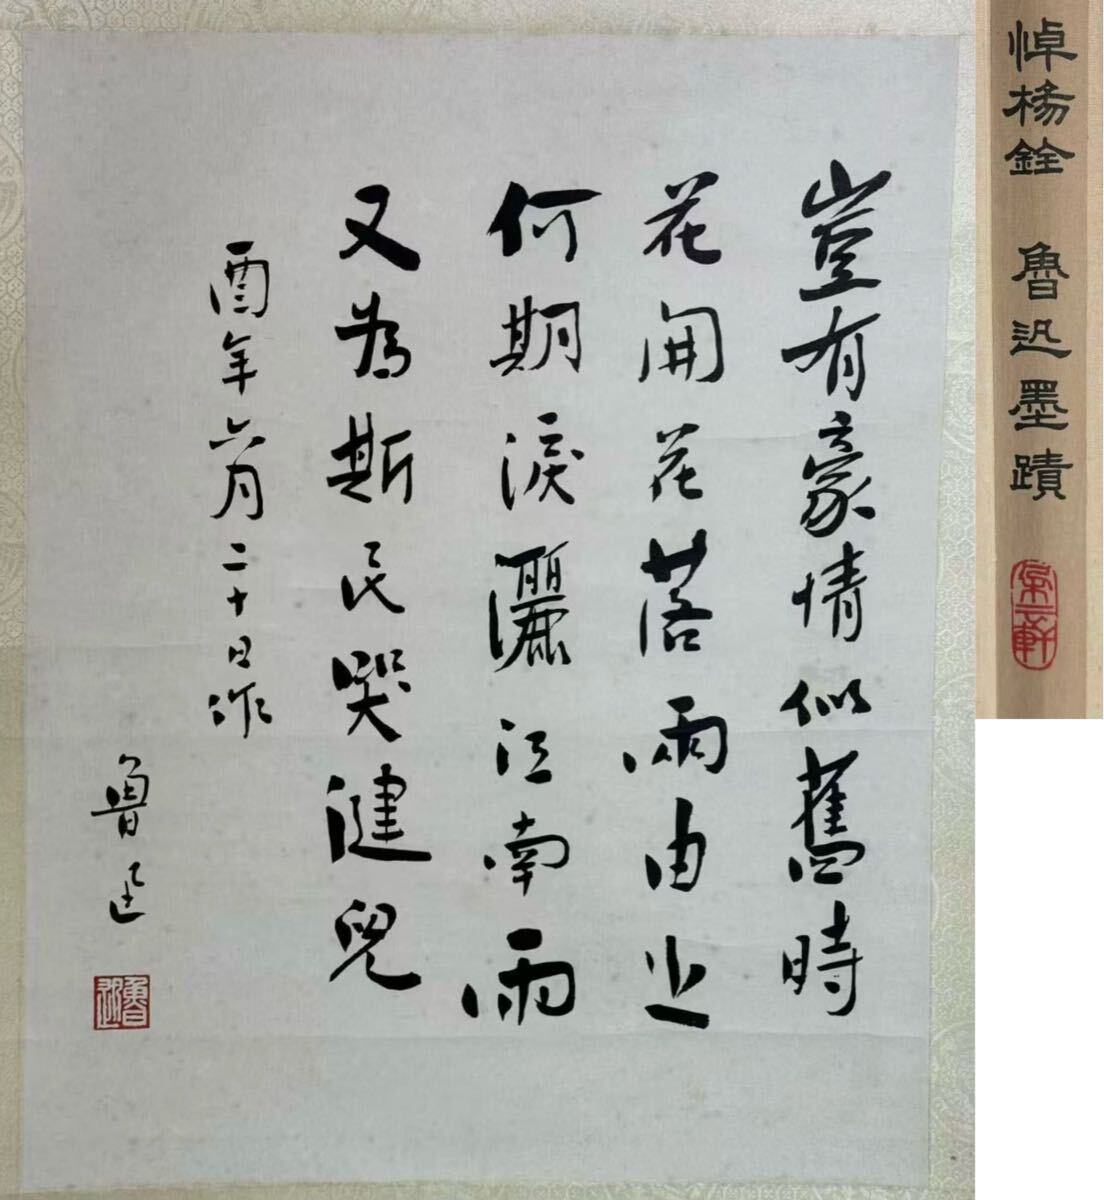 豈有豪情似舊時
花開花落兩由之
何期淚灑江南雨
又為斯民哭健兒
酉年六月二十日作
魯迅
魯迅
悼楊銓 魯迅墨蹟